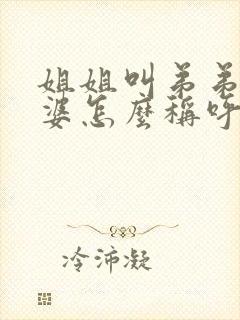 姐姐叫弟弟
婆怎麼稱呼
冷沛凝